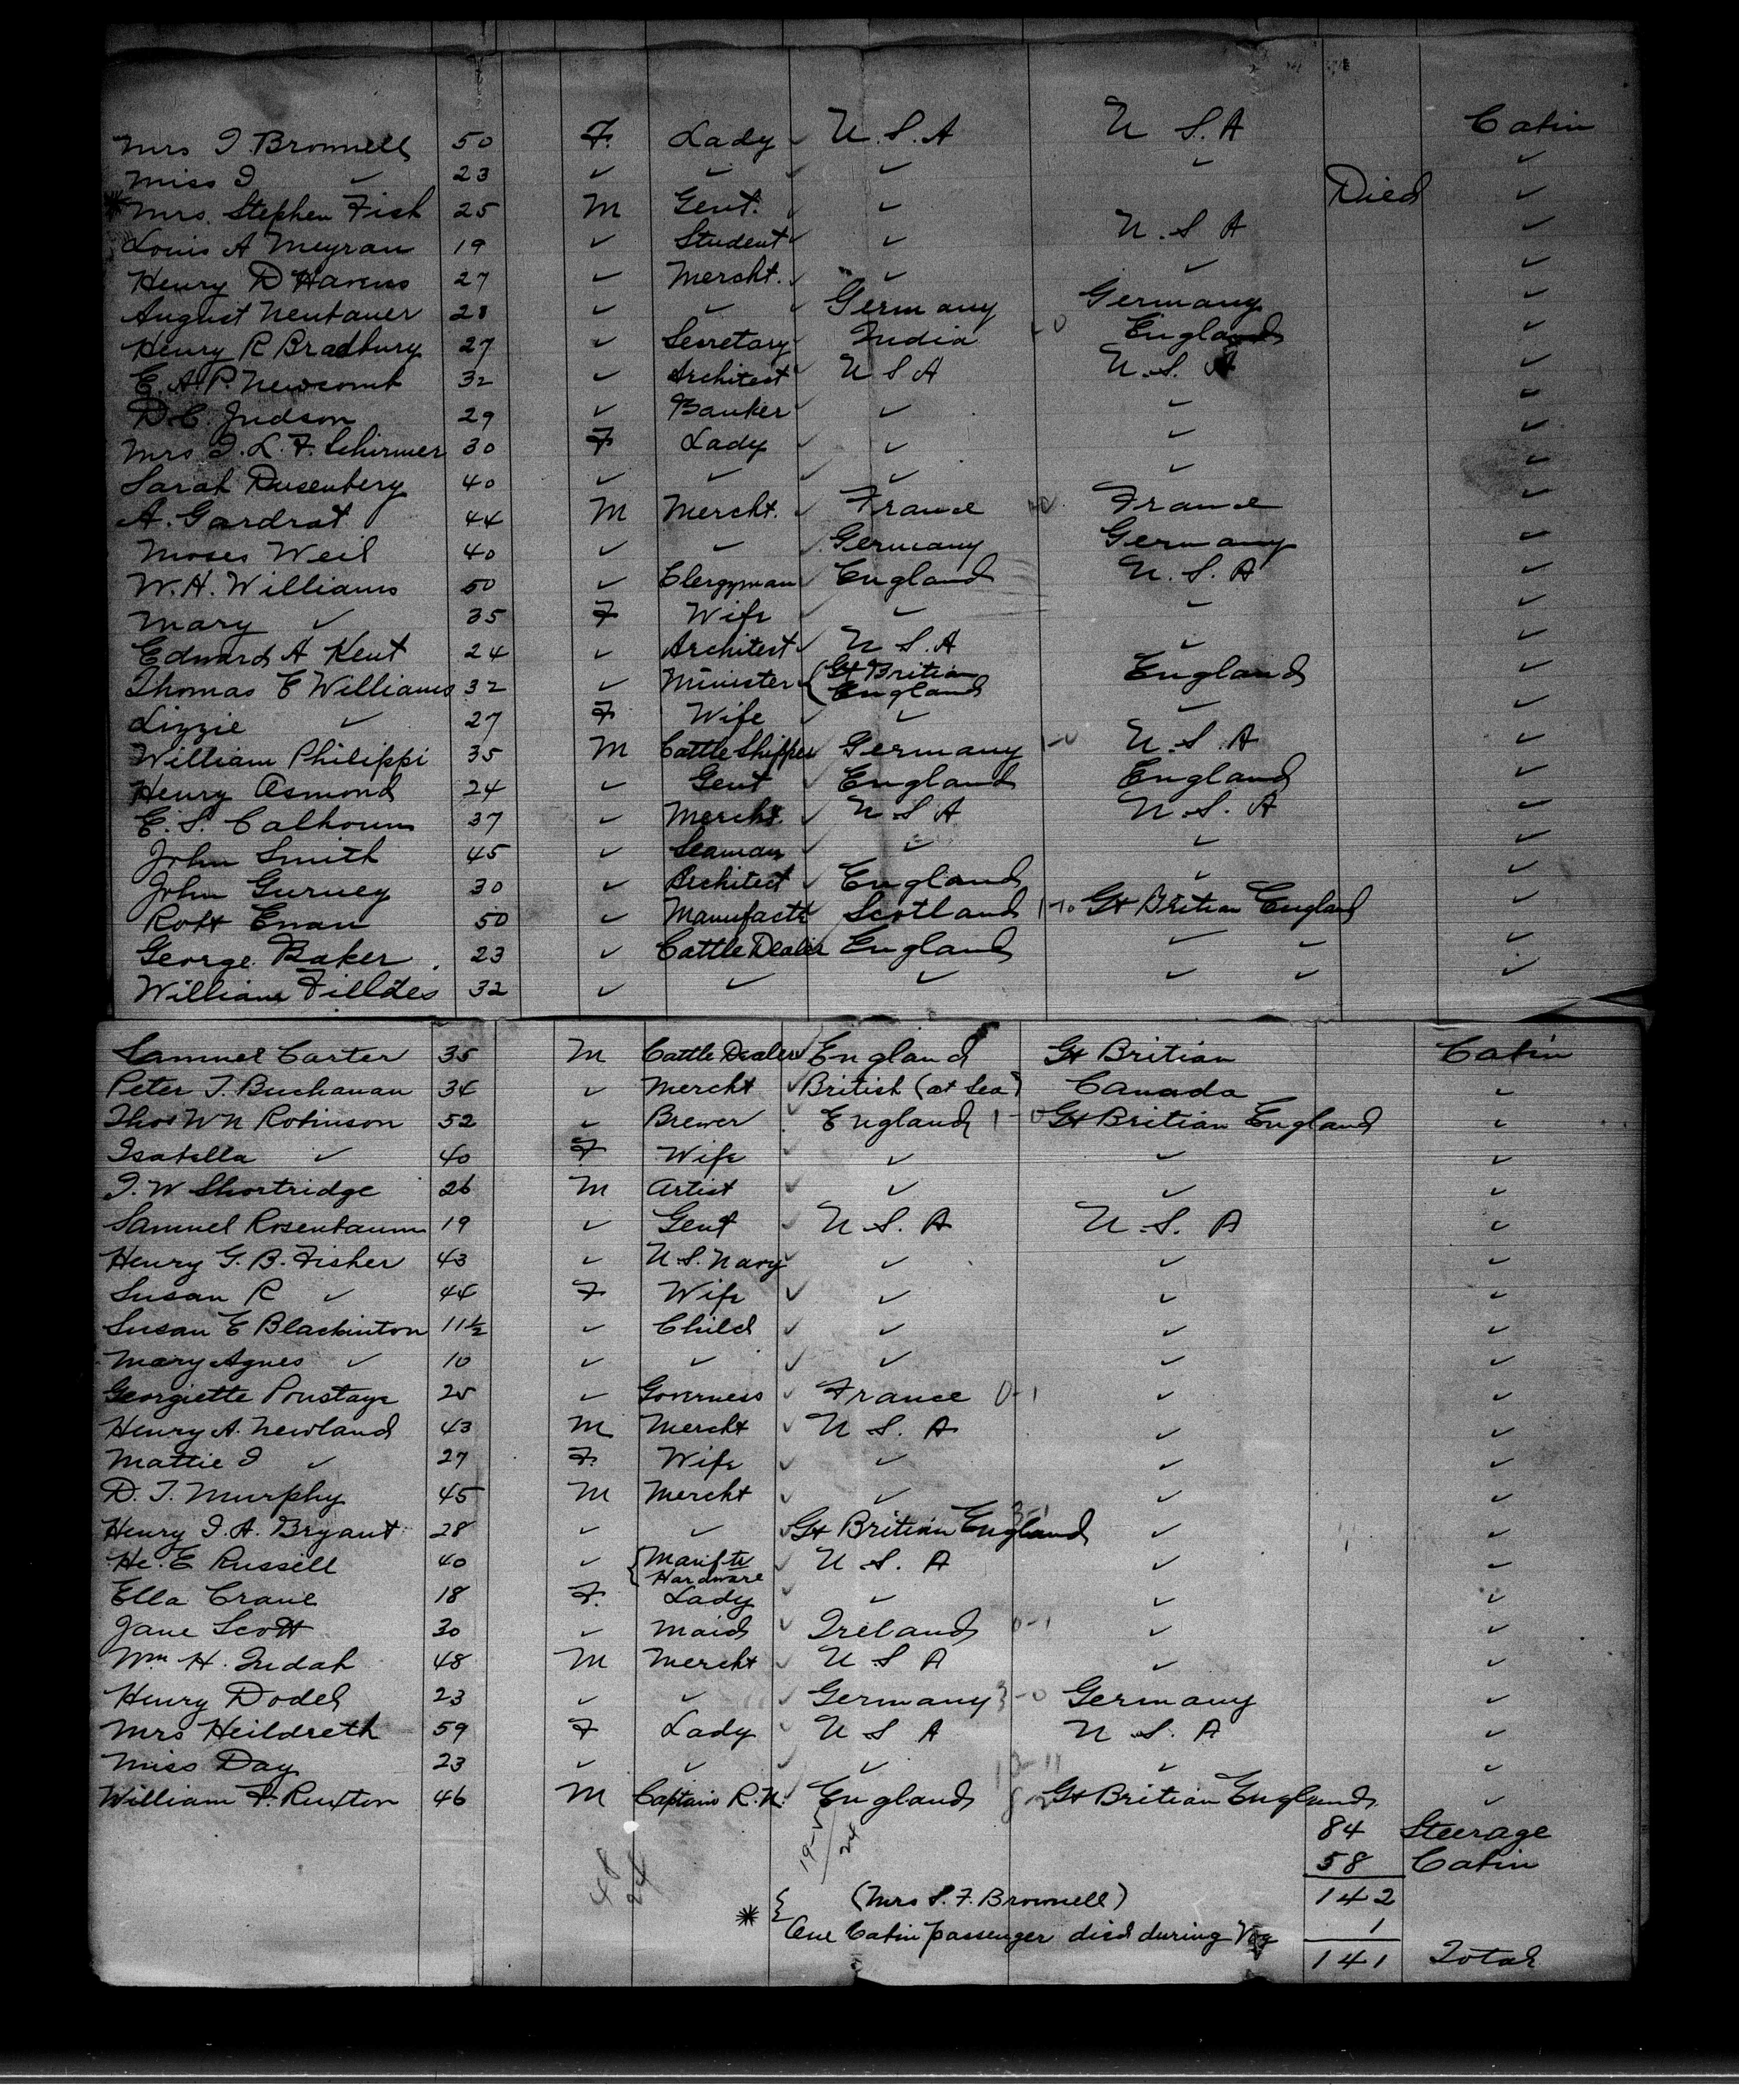 Mrs I. Brownell 50 F. Lady ✓ U.S.A U S.A Cabin
Miss I ✓ 23 ✓ ✓ ✓ ✓ ✓ ✓
* Mrs. Stephen Fish 25 M Gent. ✓ ✓ Died ✓
Louis A Meyran 19 ✓ Student ✓ ✓ U.S A ✓
Henry D Havens 27 ✓ Mercht. ✓ ✓ ✓ ✓
August Neubauer 28 ✓ ✓ ✓ Germany Germany ✓
Henry R Bradbury 27 ✓ Secretary India England ✓
E. A. P. Newcomb 32 ✓ Architect ✓ U S A U.S. A ✓
D.C. Judson 29 ✓ Banker ✓ ✓ ✓ ✓
Mrs I. L. F. Schirmer 30 F Lady ✓ ✓ ✓ ✓
Sarah Dusenbery 40 ✓ ✓ ✓ ✓ ✓ ✓
A. Gardrat 44 M Mercht. ✓ France France ✓
Moses Weil 40 ✓ ✓ ✓ Germany Germany ✓
W.H. Williams 50 ✓ Clergyman ✓ England U.S.A ✓
Mary ✓ 35 F Wife ✓ ✓ ✓ ✓
Edward A Kent 24 ✓ Architect ✓ U S.A ✓ ✓
Thomas E Williams 32 ✓ Minister ✓ (Gt Britian England England ✓
Lizzie ✓ 27 F Wife ✓ ✓ ✓ ✓
William Philippi 35 M Cattle Shipper ✓ Germany 1-0 U.S.A ✓
Henry Osmond 24 ✓ Gent ✓ England England ✓
E. S. Calhoun 37 ✓ Mercht. ✓ U S A U S. A ✓
John Smith 45 ✓ Seaman ✓ ✓ ✓ ✓
John Gurney 30 ✓ Architect ✓ England ✓ ✓
Robt Ewan 50 ✓ Manufactr ✓ Scotland 1-0 Gt Britian England ✓
George Baker. 23 ✓ Cattle Dealer England ✓ ✓ ✓
William Fielldes 32 ✓ ✓ ✓ ✓ ✓ ✓
Samuel Carter 35 M Cattle Dealer ✓ England Gt Britian Cabin
Peter T. Buchanan 34 ✓ Mercht ✓ British (at Sea) Canada ✓
Thos W N Robinson 52 ✓ Brewer ✓ England 1-0 Gt Britian England ✓
Isabella ✓ 40 F Wife ✓ ✓ ✓ ✓
I. W Shortridge 26 M Artist ✓ ✓ ✓ ✓
Samuel Rosenbaum 19 ✓ Gent ✓ U S. A U.S. A ✓
Henry G. B. Fisher 43 ✓ U.S. Navy ✓ ✓ ✓ ✓
Susan R ✓ 44 F Wife ✓ ✓ ✓ ✓
Susan E Blackinton 11½ ✓ Child ✓ ✓ ✓ ✓
Mary Agnes ✓ 10 ✓ ✓ ✓ ✓ ✓ ✓
Georgiette Poustage 25 ✓ Governess ✓ France 0-1 ✓ ✓
Henry A. Newland 43 M Mercht ✓ U S. A ✓ ✓
Mattie I ✓ 27 F. Wife ✓ ✓ ✓ ✓
D. T. Murphy 45 M Mercht ✓ ✓ ✓ ✓
Henry I. A. Bryant 28 ✓ ✓ ✓ Gt Britian England 3-1 ✓ ✓
He. E Russell 40 ✓ {Maniftr Hardware ✓ U S. A ✓ ✓
Ella Crane 18 F. Lady ✓ ✓ ✓ ✓
Jane Scott 30 ✓ Maid ✓ Ireland 0-1 ✓ ✓
Wm H. Judah 48 M Mercht ✓ U S A ✓ ✓
Henry Dodel 23 ✓ ✓ ✓ Germany 3-0 Germany ✓
Mrs Heildreth 59 F Lady ✓ U S A U S. A ✓
Miss Day 23 ✓ ✓ ✓ ✓ ✓ ✓
William F. Ruxton 46 M Captain R.N. ✓ England Gt Britian England ✓
84 Steerage
58 Cabin
142
1
141 Total
48
24
19-5
24
* { (Mrs S. F. Brownell)
One Cabin passenger died during Voy